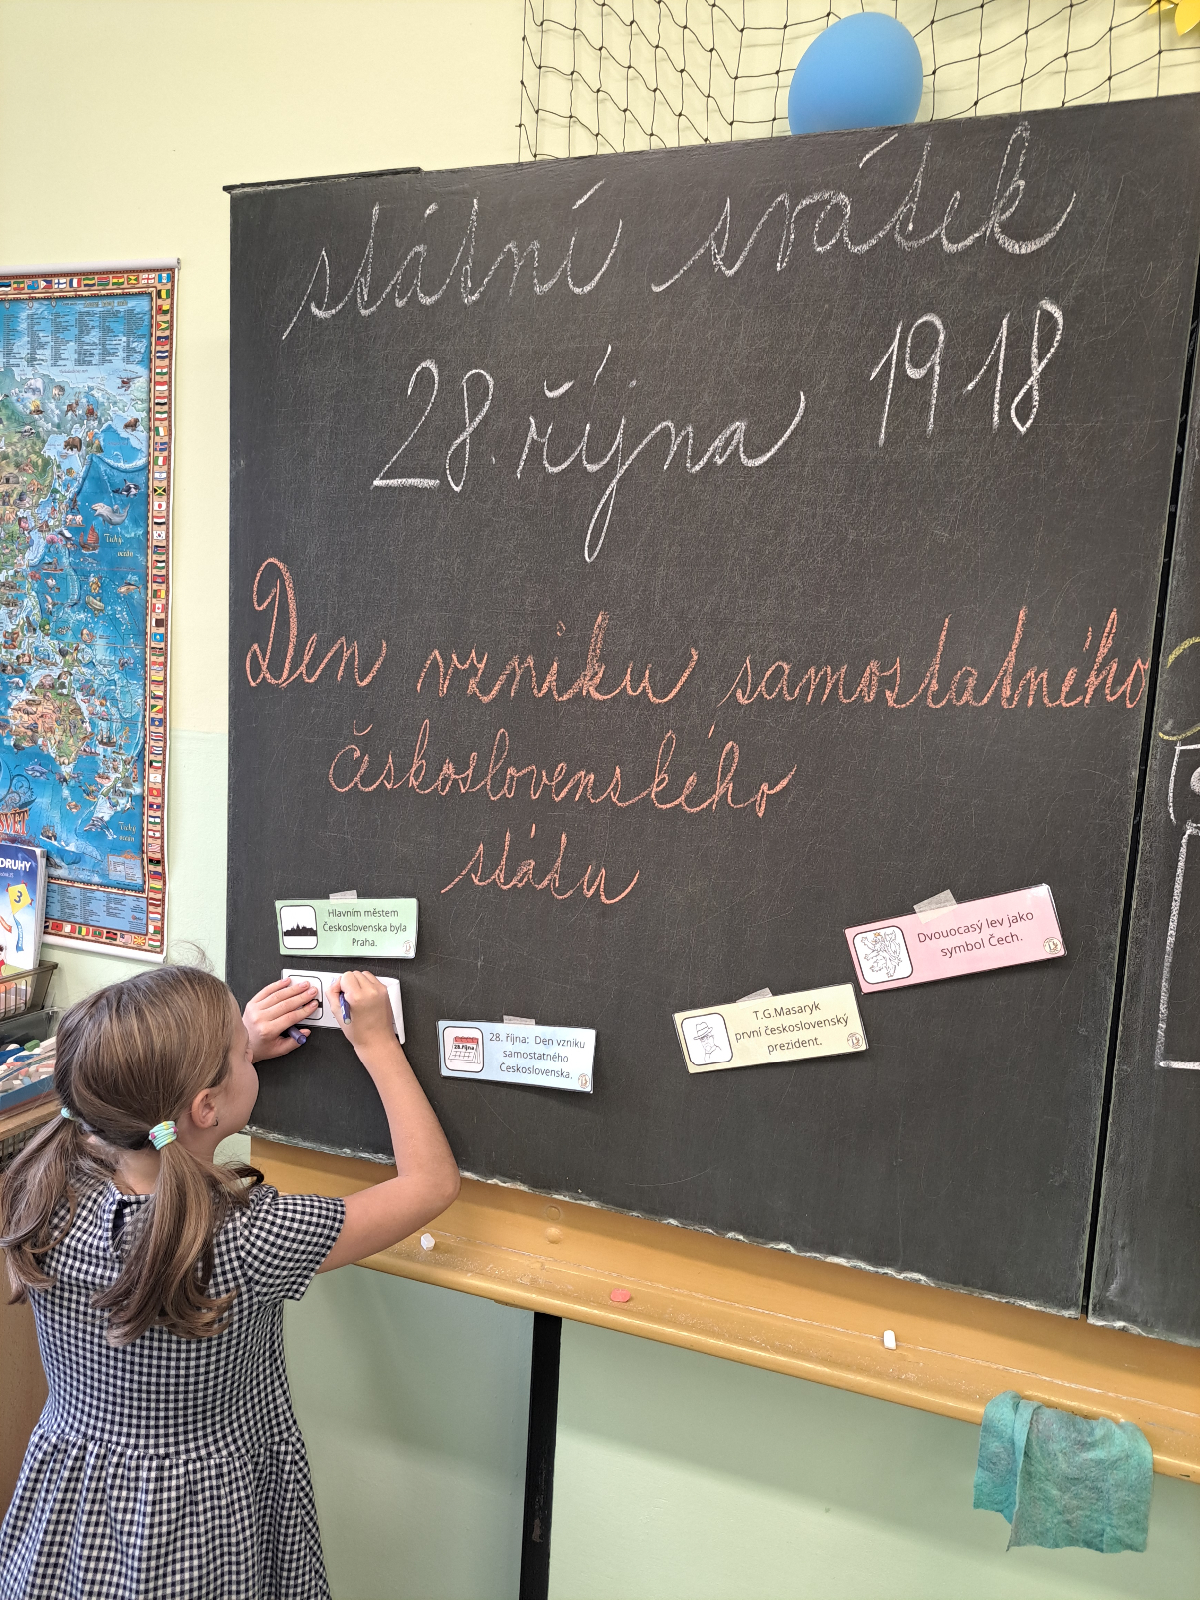 státní svátek
28. října 1918
Den vzniku samostatného
československého
státu
Hlavním městem
Československa byla
Praha.
28. října: Den vzniku
samostatného
Československa.
28.října
T.G.Masaryk
první československý
prezident.
Dvouocasý lev jako
symbol Čech.
Tichý
oceán
Tichý
oceán
SVĚT
DRUHY
3